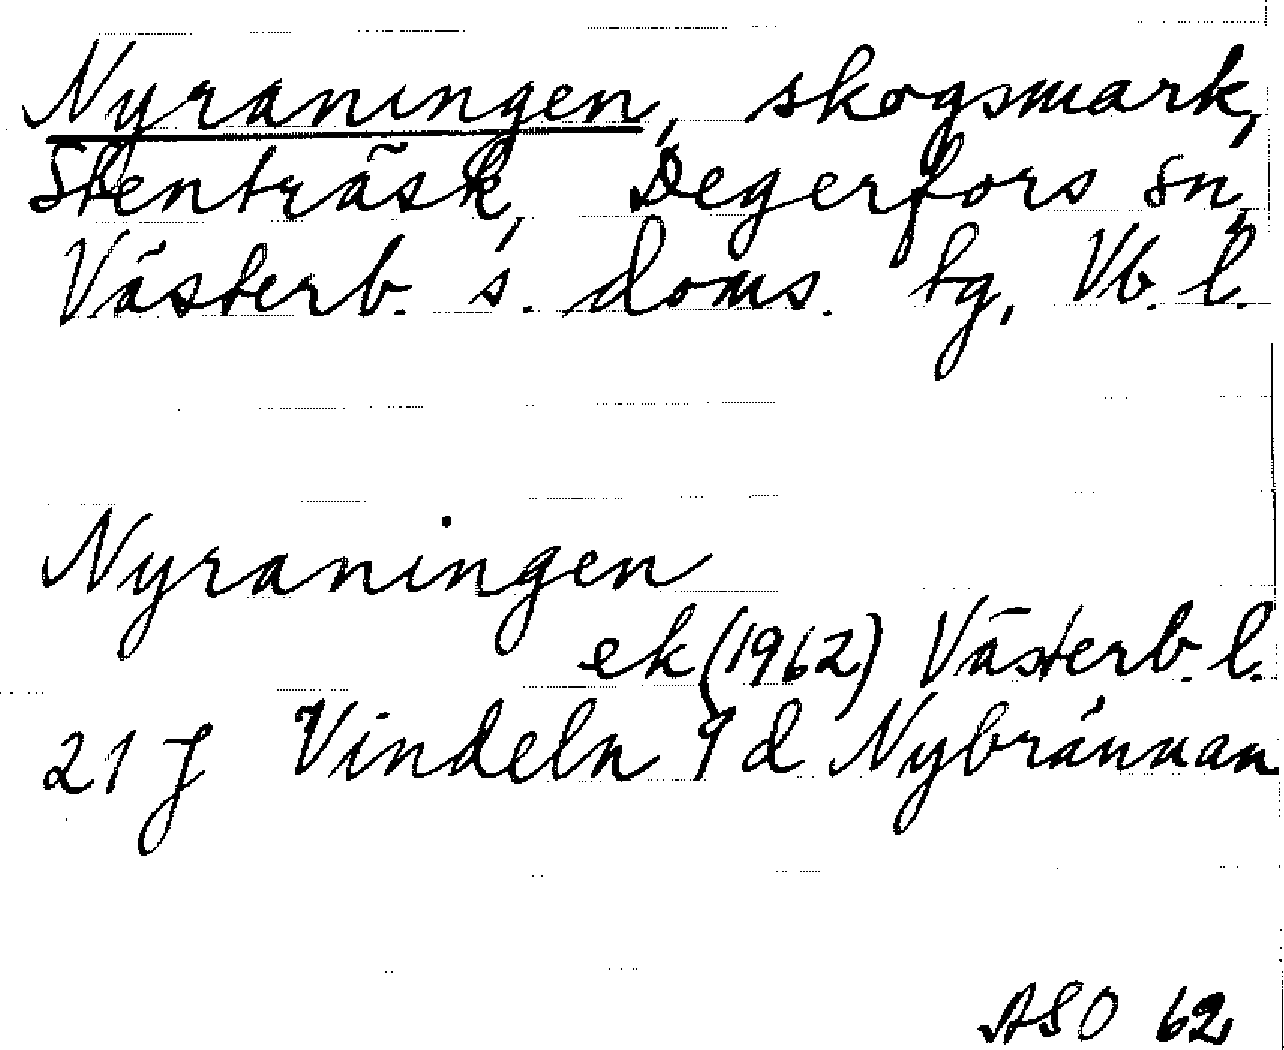 Nyraningen, skogsmark,
Stenträsk, Degerfors sn,
Västerb. s. doms. tg, Vb. l.
Nyraningen
ek (1962) Västerb. l.
21 J Vindeln 9 d Nybrännan
ASO 62